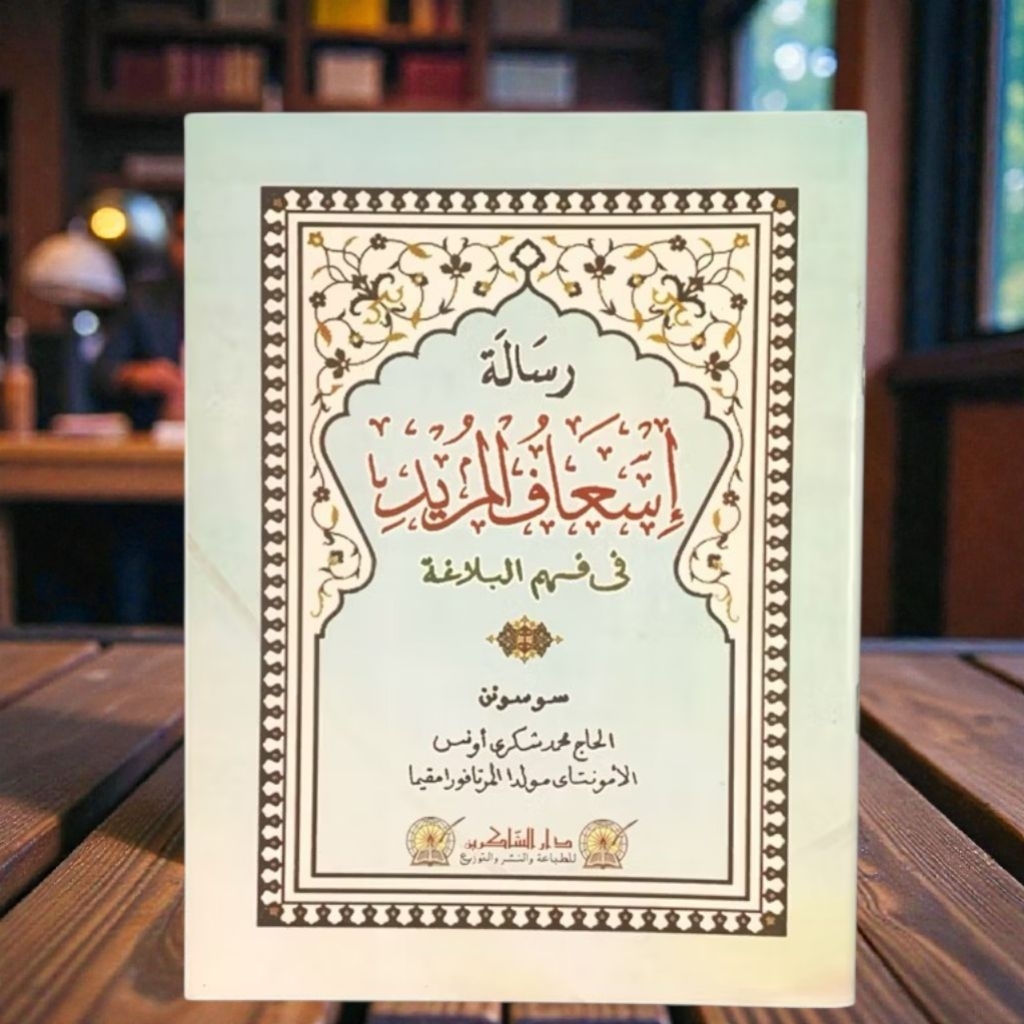 رسَالَة
إِسْعَافُ الْمُرِيْدِ
فى فهم البلاغة
سوسونن
الحاج محمد شكري أونس
الأمونتاى مولدا المرتافورا مقيما
دار الشاكرين
للطباعة والنشر والتوزيع